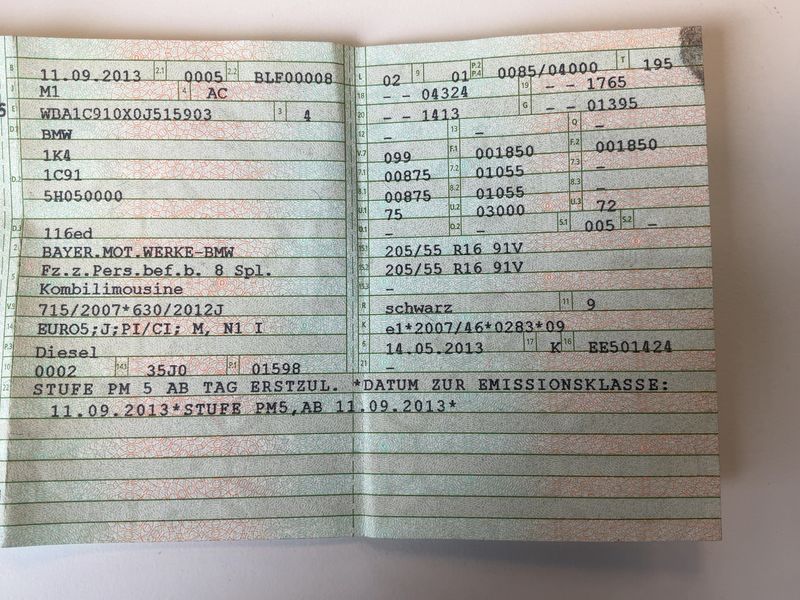 B 11.09.2013 2.1 0005 2.2 BLF00008
J M1 4 AC
E WBA1C910X0J515903 3 4
D.1 BMW
1K4
1C91
D.2 5H050000
D.3 116ed
2 BAYER.MOT.WERKE-BMW
5 Fz.z.Pers.bef.b. 8 Spl.
Kombilimousine
V.9 715/2007*630/2012J
14 EURO5;J;PI/CI; M, N1 I
P.3 Diesel
10 0002 14.1 35J0 P.1 01598
22 STUFE PM 5 AB TAG ERSTZUL. *DATUM ZUR EMISSIONSKLASSE:
11.09.2013*STUFE PM5,AB 11.09.2013*
L 02 9 01 P.2 P.4 0085/04000 T 195
18 - - 04324 19 - - 1765
20 - - 1413 G - - 01395
12 - 13 - Q -
V.7 099 F.1 001850 F.2 001850
7.1 00875 7.2 01055 7.3 -
8.1 00875 8.2 01055 8.3 -
U.1 75 U.2 03000 U.3 72
O.1 - O.2 - S.1 005 S.2 -
15.1 205/55 R16 91V
15.2 205/55 R16 91V
15.3 -
R schwarz 11 9
K e1*2007/46*0283*09
6 14.05.2013 17 K 16 EE501424
21 -